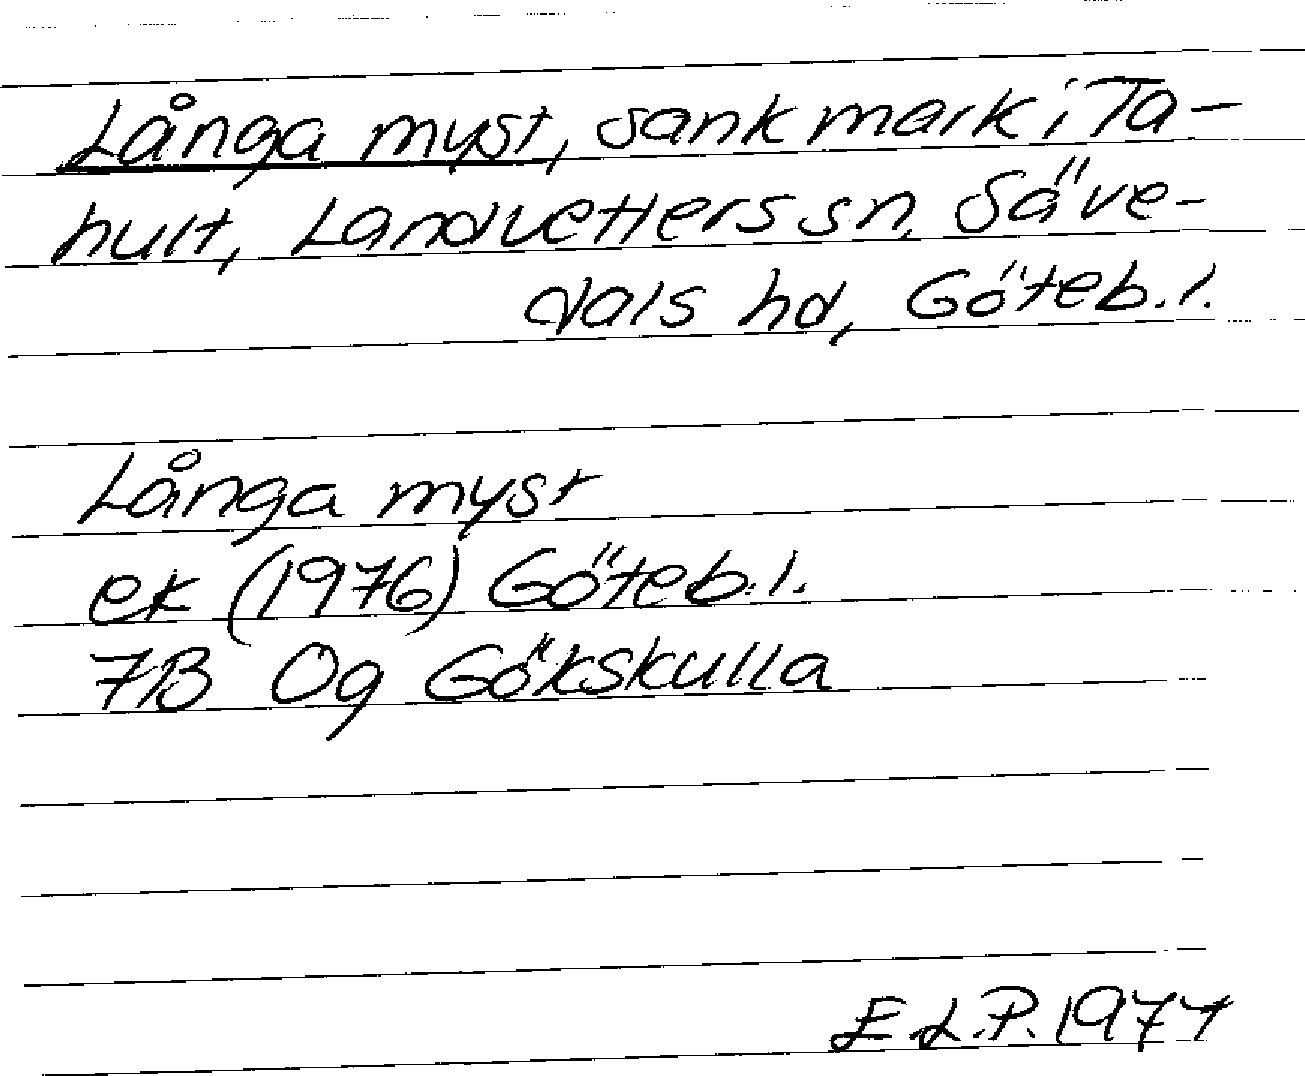 Långa myst, sank mark i Ta-
hult, Landvetters sn, Säve-
dals hd, Göteb. l.
Långa myst
ek (1976) Göteb. l.
7B 0g Gökskulla
E.L.P. 1977